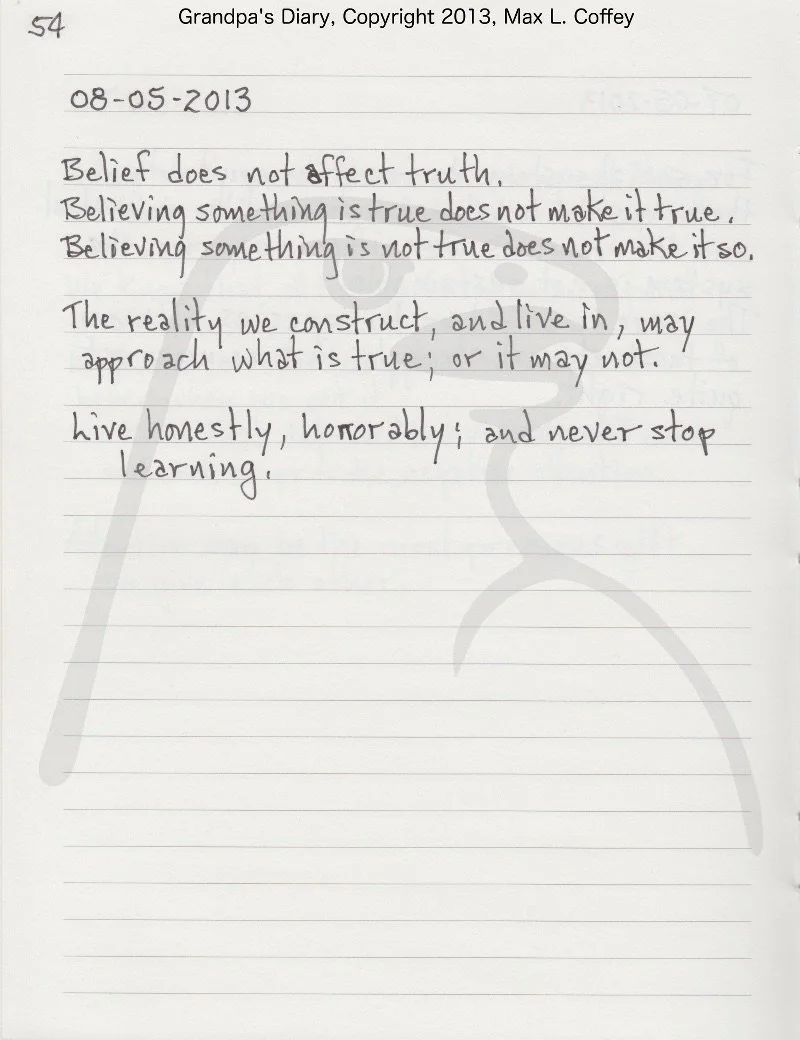 Grandpa's Diary, Copyright 2013, Max L. Coffey
54
08-05-2013
Belief does not affect truth.
Believing something is true does not make it true.
Believing something is not true does not make it so.
The reality we construct, and live in, may
approach what is true; or it may not.
Live honestly, honorably; and never stop
learning.